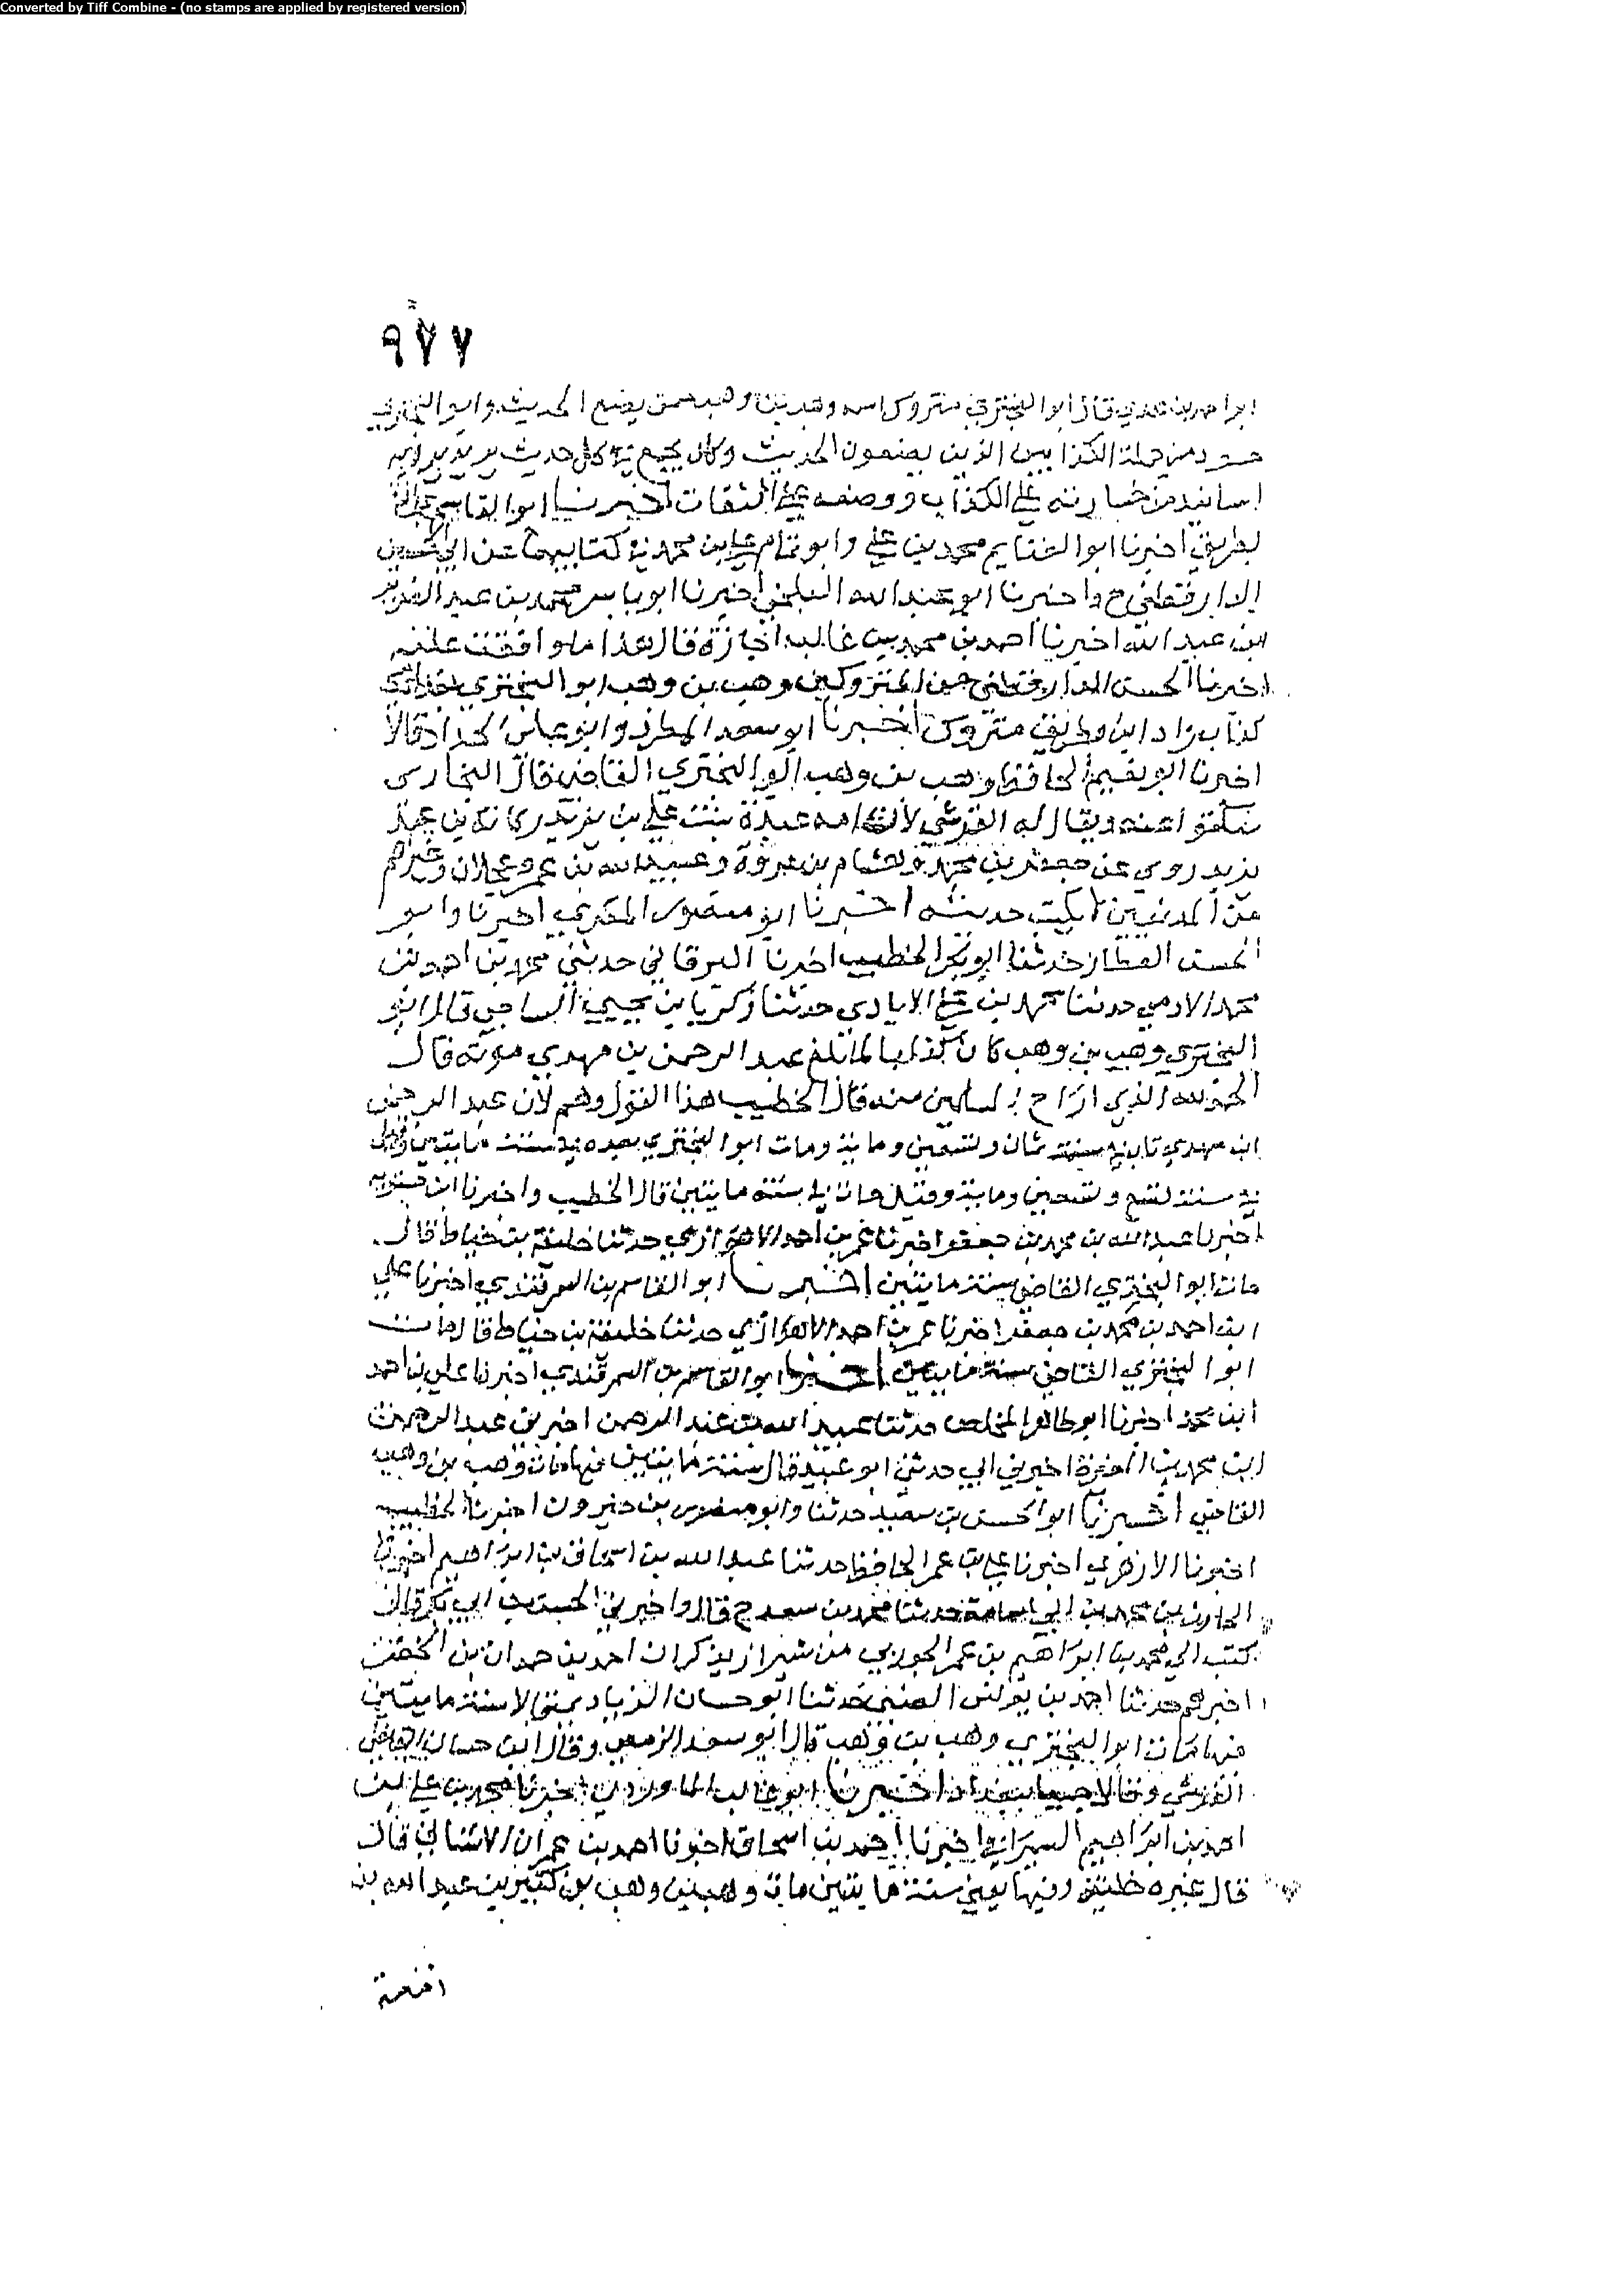 Converted by Tiff Combine - (no stamps are applied by registered version)
٩٧٧
ابو احمد بن عدي قال ابو البختري متروك اسمه وهب بن وهب ممن يضع الحديث وابو البختري
من جملة الكذابين الذين يضعون الحديث وكان يجمع في كل حديث يريد يرويه
اسانيد من جسارته على الكذب ووضعه على الثقات اخبرنا ابو القاسم
اخبرنا ابو الغنايم محمد بن علي وابو تمام علي بن محمد في كتابيهما عن ابي الحسن
الدارقطني ح واخبرنا ابو عبد الله البلخي اخبرنا ابو ياسر محمد بن عبد العزيز
بن عبد الله اخبرنا احمد بن محمد بن غالب اجازة قال هذا ما وافقت عليه
الحسن الدارقطني من المتروكين وهب بن وهب ابو البختري
كذاب زاد ابن متروك اخبرنا ابو سعد المطرز وابو علي الحداد قالا
اخبرنا ابو نعيم الحافظ وهب بن وهب ابو البختري القاضي قال البخاري
سكتوا عنه ويقال له القرشي لأن امه عبدة بنت علي بن يزيد بن ركانة بن عبد
يزيد روى عن جعفر بن محمد وهشام بن عروة وعبيد الله بن عمر وعجلان وغيرهم
من المدنيين لا يكتب حديثه اخبرنا ابو منصور المقري اخبرنا وابو
الحسن العطار حدثنا ابو بكر الخطيب اخبرنا البرقاني حدثني محمد بن احمد بن
محمد الادمي حدثنا محمد بن علي الايادي حدثنا زكريا بن يحيى الساجي قال ابو
البختري وهب بن وهب كان كذابا لما بلغ عبد الرحمن بن مهدي موته قال
الحمد لله الذي اراح المسلمين منه قال الخطيب هذا القول وهم لان عبد الرحمن
ابن مهدي مات في سنة ثمان وتسعين وماية ومات ابو البختري بعده في سنة مايتين وقيل
في سنة تسع وتسعين وماية وقيل مات في سنة مايتين قال الخطيب واخبرنا ابن حسنويه
اخبرنا عبد الله بن محمد بن جعفر اخبرنا عمر بن احمد الاهوازي حدثنا خليفة بن خياط قال
مات ابو البختري القاضي سنة مايتين اخبرنا ابو القاسم بن السمرقندي اخبرنا علي
بن احمد بن محمد بن جعفر اخبرنا عمر بن احمد الاهوازي حدثنا خليفة بن خياط قال مات
ابو البختري القاضي سنة مايتين اخبرنا ابو القاسم بن السمرقندي اخبرنا علي بن احمد
ابن محمد اخبرنا ابو طاهر المخلص حدثنا عبيد الله بن عبد الرحمن اخبرني عبد الرحمن
ابن محمد بن المغيرة اخبرني ابي حدثني ابو عبيد قال سنة مايتين فيها مات وهب بن وهب
القاضي اخبرنا ابو الحسن بن سعيد حدثنا وابو منصور بن خيرون اخبرنا الخطيب
اخبرنا الازهري اخبرنا علي بن عمر الحافظ حدثنا عبد الله بن اسحاق بن ابراهيم اخبرنا
الحارث بن محمد بن ابي اسامة حدثنا محمد بن سعد ح قال واخبرني الحسن بن ابي بكر قال
كتب الي محمد بن ابراهيم بن عمر الجوري من شيراز يذكر ان احمد بن حمدان بن الخضر
اخبرهم حدثنا احمد بن يونس الضبي حدثنا ابو حسان الزيادي قالا سنة مايتين
فيها مات ابو البختري وهب بن وهب قال ابو سعد الزهري وقال ابن حسان القاضي
القرشي وقالا جميعا ببغداد اخبرنا ابو غالب الماوردي اخبرنا محمد بن علي بن
احمد بن ابراهيم السيرافي اخبرنا احمد بن اسحاق اخبرنا احمد بن عمران الاشناني قال
قال غيره خليفة وفيها يعني سنة مايتين مات وهب بن وهب بن كثير بن عبد الله بن